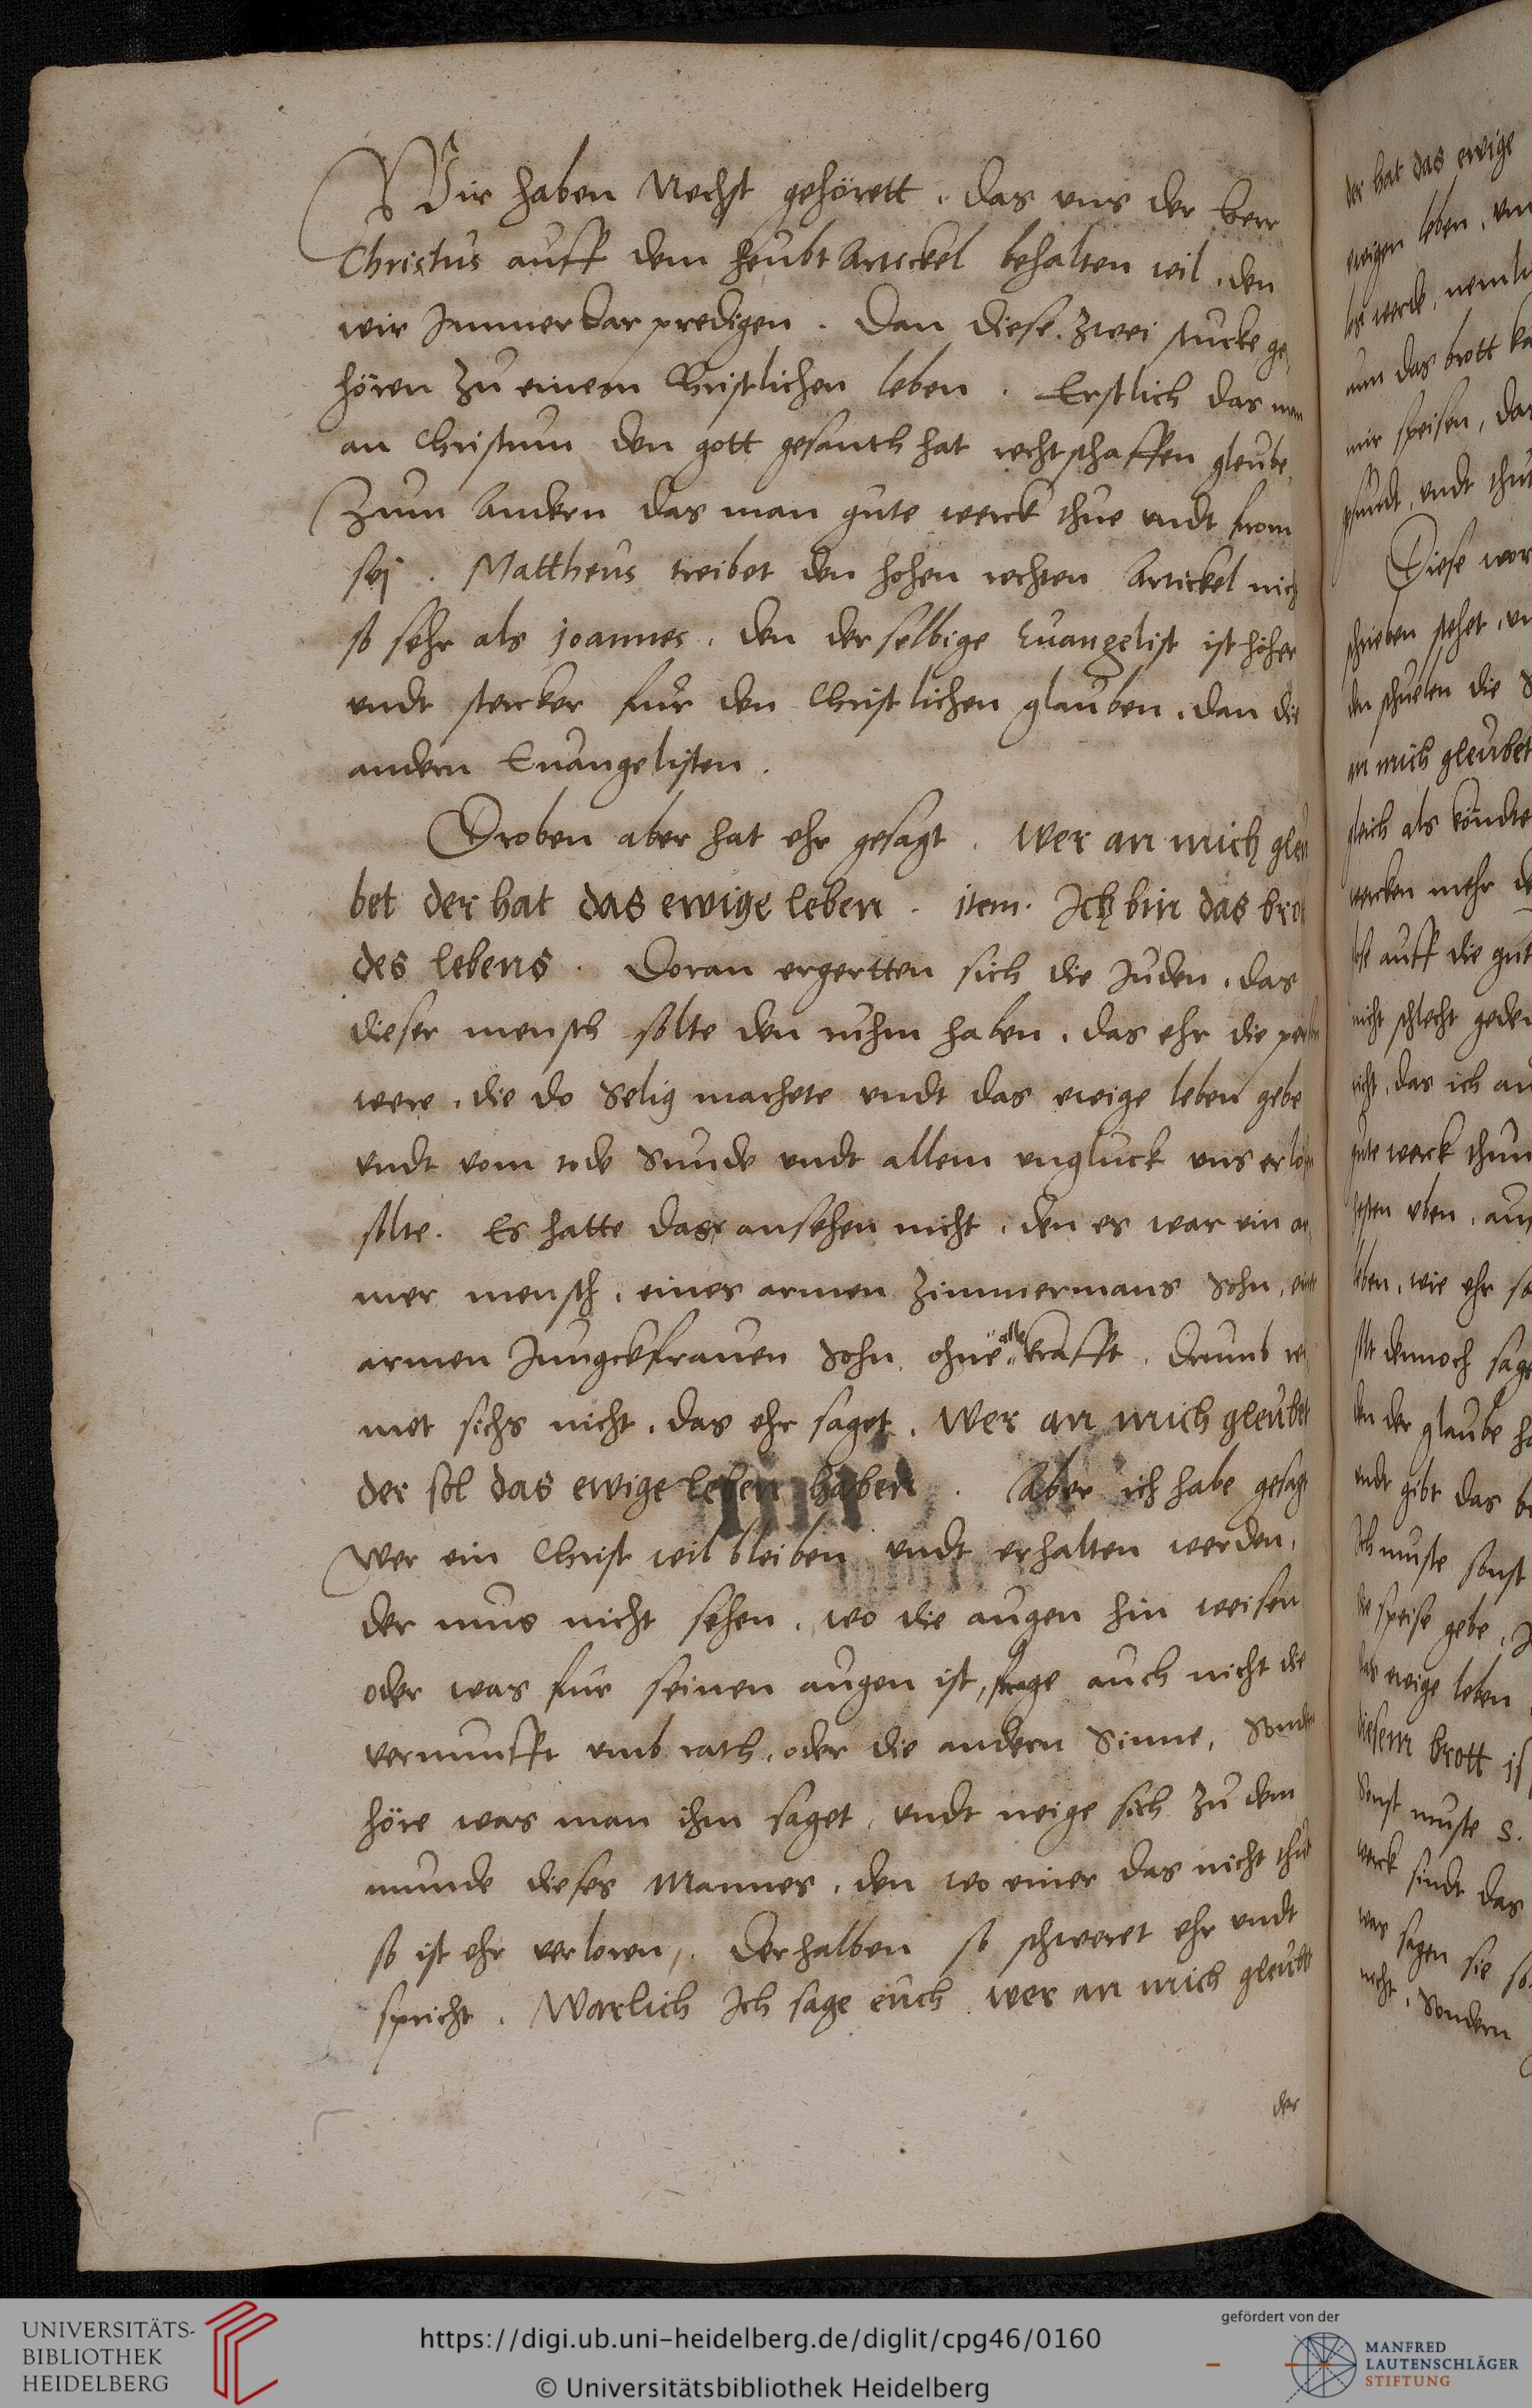 Wir haben Nechst gehörett, das uns der herr
Christus auff dem heubt Artickel behalten wil, den
wir Immerdar predigen. Dan diese zwei stucke ge¬
hören zu einem Christlichen leben. Erstlich das man
an Christum den gott gesanth hat rechtschaffen gleube,
Zum Andern das man gute werck thue undt from
sej. Mattheus treibet den hohen rechten Artickel nich
so sehr als joannes, den der selbige Euangelist ist höher
undt stercker fur den Christlichen glauben, dan die
andern Euangelisten.
Droben aber hat ehr gesagt. Wer an mich gleu
bet der hat das ewige leben. item. Ich bin das brot
des lebens. Doran ergertten sich die Juden, das
dieser mensch solte den ruhm haben, das ehr die person
were, die do Selig machete undt das ewige leben gebe
undt vom tode Sunde undt allem ungluck uns erlösen
solte. Es hatte das ansehen nicht, den es war ein ar
mer mensch, eines armen Zimmermans Sohn, einer
armen Jungckfrauen Sohn, ohne alle krafft, Drumb rei
met sichs nicht, das ehr saget, Wer an mich gleubet
der sol das ewige leben haben. Aber ich habe gesagt
Wer ein Christ wil bleiben undt erhalten werden,
der mus nicht sehen, wo die augen hin weisen
oder was fur seinen augen ist, frage auch nicht die
vernunfft umb rath, oder die andern Sinne, Sondern
höre was man ihm saget, undt neige sich zu dem
munde dieses Mannes, den wo einer das nicht thut
so ist ehr verloren, Derhalben so schweret ehr undt
spricht. Warlich Ich sage euch wer an mich gleubt
der
der hat das ewige
ewigen leben, un
werde, neml
nun das brott ka
mir speisen, das
undt thut
Diese wor
schrieben stehet, un
den schuelen die S
an mich gleubet
gleich als köndte
wercken mehr de
auff die gut
nicht schlecht geden
nicht, das ich an
gute werck thun
uben, aus
leben, wie ehr sa
dennoch sage
den der glaube ha
undt gibt das br
Ich muste sonst
die speise gebe, J
das ewige leben,
diesem brott is
Sonst muste S.
werck sindt das
was sagen sie so
nicht, Sondern
UNIVERSITÄTS-
BIBLIOTHEK
HEIDELBERG
https://digi.ub.uni-heidelberg.de/diglit/cpg46/0160
© Universitätsbibliothek Heidelberg
gefördert von der
MANFRED
LAUTENSCHLÄGER
STIFTUNG